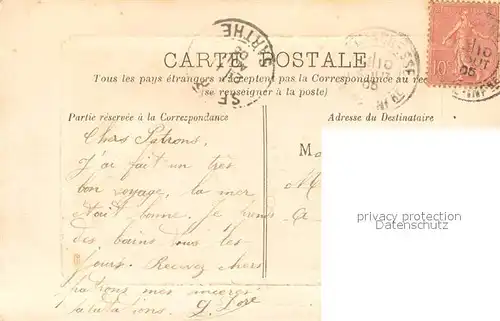 CARTE POSTALE
Tous les pays étrangers n'acceptent pas la Correspondance au
(se renseigner à la poste)
Partie réservée à la Correspondance
Adresse du Destinataire
Chers Patrons,
J'ai fait un très
bon voyage, la mer
était bonne. Je prends
des bains tous les
jours. Recevez chers
patrons mes sincères
salutations.
M
M
a
SARTHE
10
privacy protection
Datenschutz